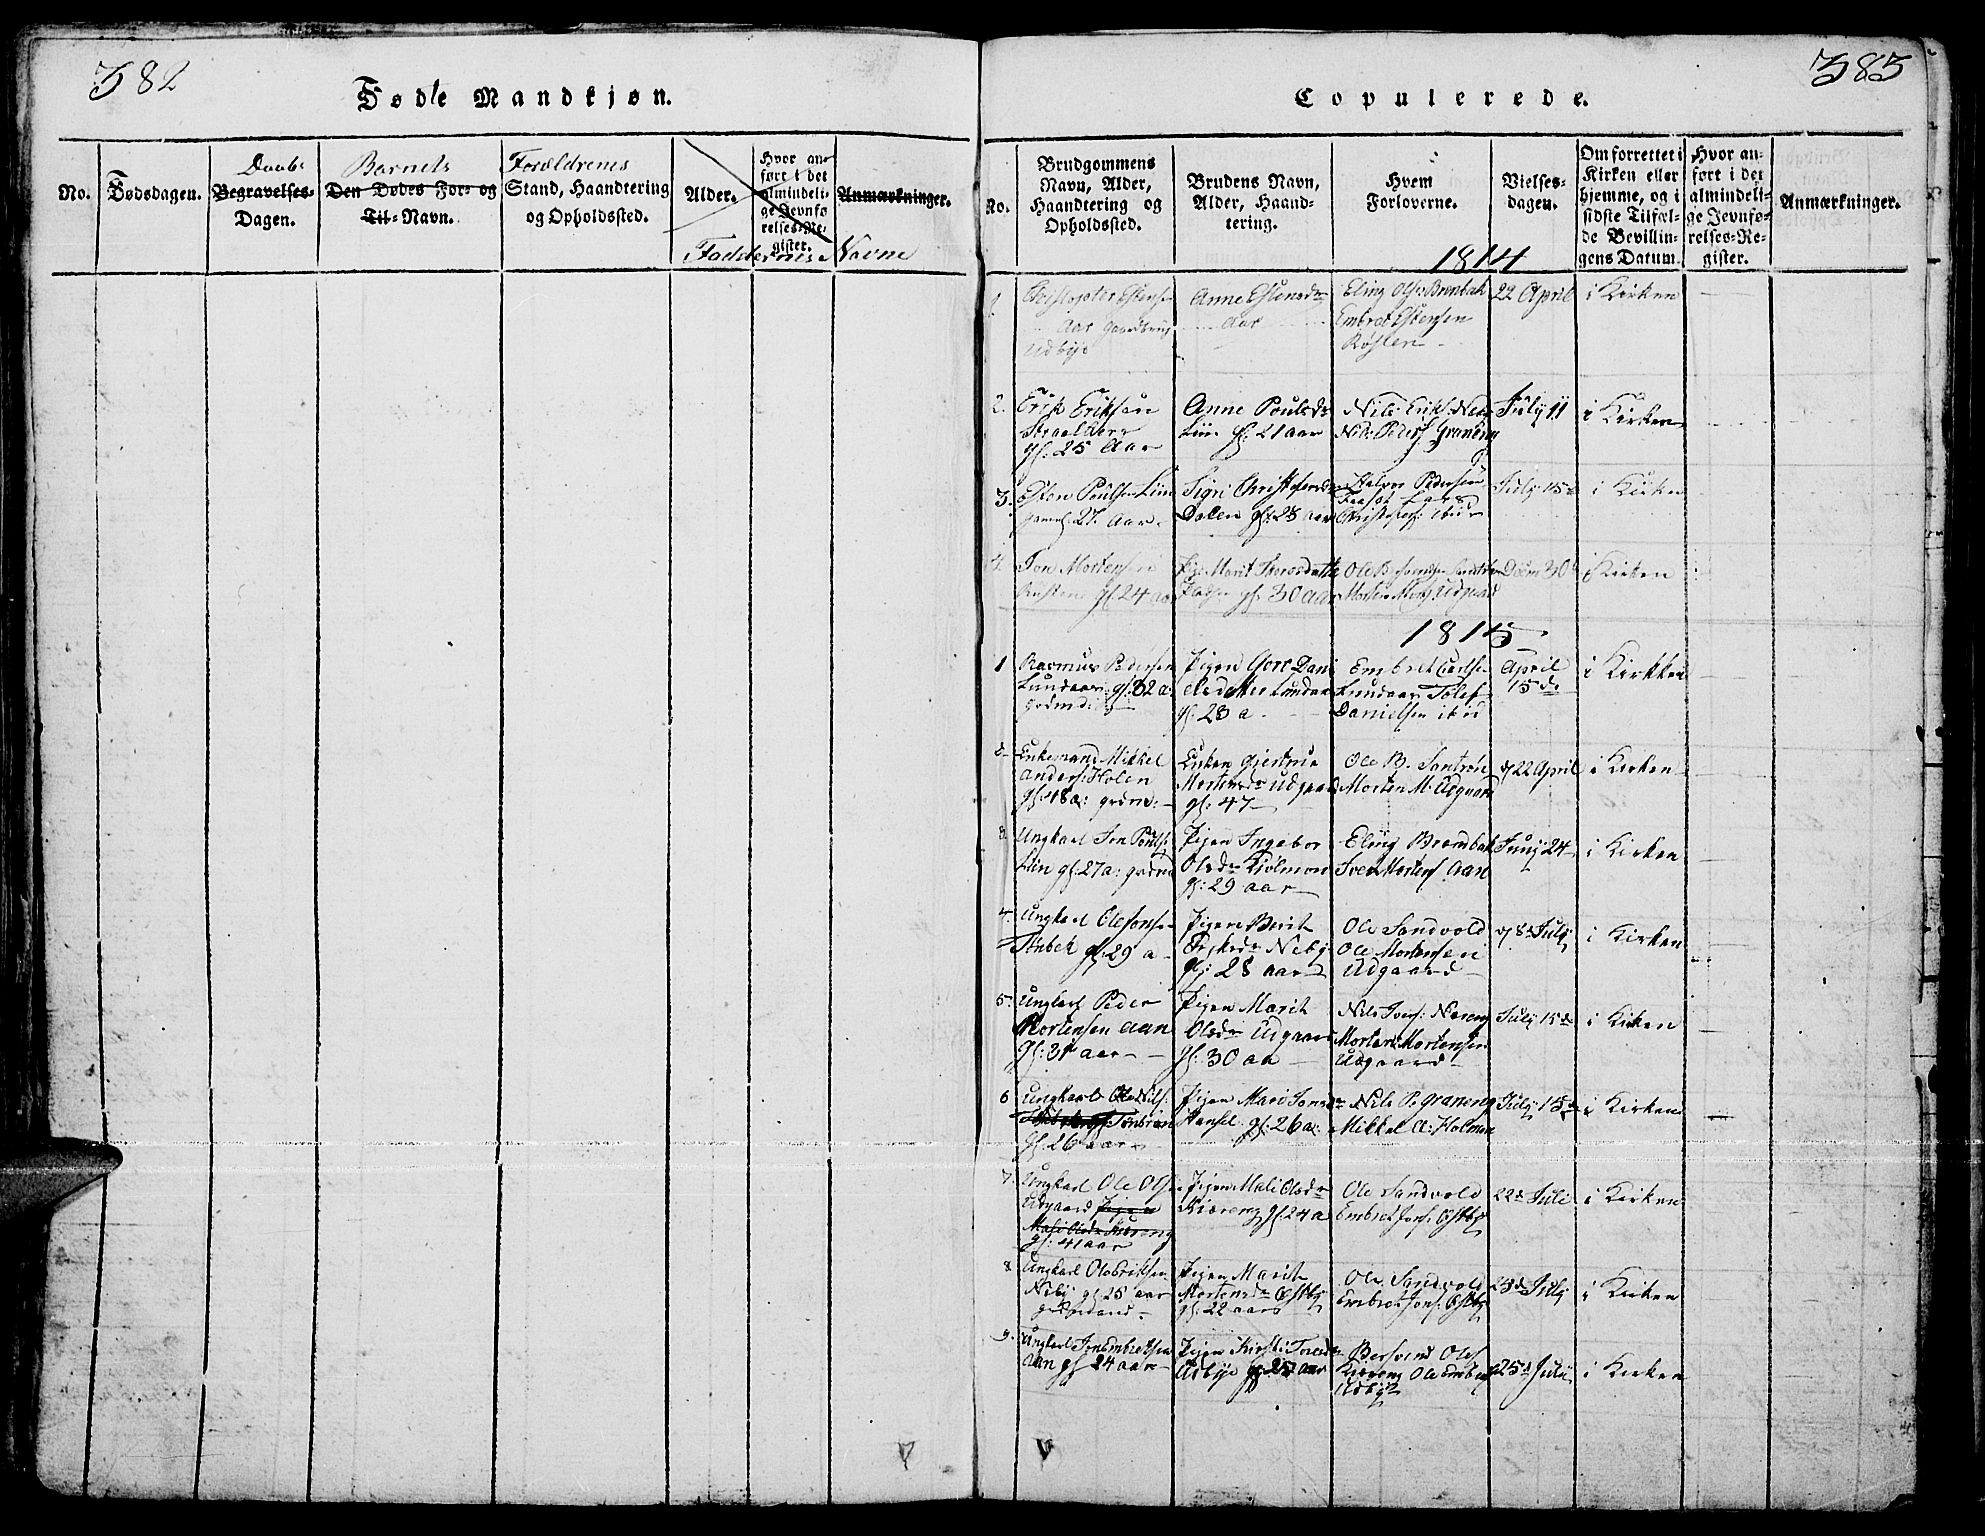 382
Døde Mandkjøn.
No.
Dødsdagen.
Daabs
Begravelses-
Dagen.
Barnets
Den Dødes For- og
Til-Navn.
Forældrenes
Stand, Haandtering
og Opholdssted.
Alder.
Hvor an-
ført i det
almindeli-
ge Jevnfø-
relses-Re-
gister.
Anmærkninger.
Faddernes Navne
383
Copulerede.
No.
Brudgommens
Navn, Alder,
Haandtering og
Opholdssted.
Brudens Navn,
Alder, Haand-
tering.
Hvem
Forloverne.
Vielses-
dagen.
Om forrettet i
Kirken eller
hjemme, og i
sidste Tilfæl-
de Bevillin-
gens Datum.
Hvor an-
ført i det
almindeli-
ge Jevnfø-
relses-Re-
gister.
Anmærkninger.
1814
1 Christopher Estens
Aar Gaardbrug
Udbye
Anne Estensdr
Aar
Eling Ols: Brenbak
Embret Estensen
Røsten
22 April
i Kirken
2. Erik Eriksen
gl: 25 Aar
Anne Poulsdr
Liin gl: 21 aar
Nils Erikf: Neb
Nils Pedersf Graneng
July 11
i Kirken
3. Esten Poulsen Liin
gaml. 27. Aar.
Sigri Christophersdr
Dalen gl: 23 aar
Halvor Pedersen
Christophersf: ibid
July 15
i Kirken
4. Jon Mortensen
gl. 24 aar
Pig: Marit Thoresdatter
gl. 30 Aar
Ole B
Morten Mortf Udgaard
30
i Kirken
1815
1 Rasmus Pedersen
Lundaar gl: 32 a:
grdmd:
Pigen Gore Dani
elsdatter Lundaa
gl: 23 a
Embret Carlse
Lundaar Tolef
Danielsen ibid
April
15de
i Kirkken
2 Enkemand Mikkel
Anders: Holen
gl: 48 a: grdm:
Enken Gjertrue
Mortensdr Udgaard
gl: 47
Ole B. Santrøe
Morten M. Udgaard
d 22 April
i Kirken
3. Ungkarl Jon Poulse
Liin gl: 27 a: grdmd
Pigen Ingebor
Olsdr Kiølmon
gl: 29 aar
Eling Brændbak
Sven Mortens Aan
Juny 24
i Kirken
4. Ungkarl Ole Jonse
Stubek gl: 29 a
Pigen Berit
Eriksdr Neby
gl: 28 aar
Ole Sandvold
Ole Mortensen
Udgaard
d 8d July
i Kirken
5. Ungkarl Peder
Mortensen Aan
gl: 31 aar
Pigen Marit
Olsdr Udgaar
gl: 30 aa
Nils Ivers: Nøreng
Morten Mortensen
Udgaard
July 15de
i Kirken
6 Ungkarl Ole Nils:
gl: 26 aar
Pigen Mari Jonsdr
Hansel gl: 26 a:
Nils P. Graneng
Mikkel A: Holmen
July 15de
i Kirken
7. Ungkarl Ole Olse
Udgaard Pigen
Mali Olsdr Kiøreng
gl: 41 aar
Pigen Mali Olsdr
Kiøreng gl: 24 a
Ole Sandvold
Embret Jons: Østby
22d Juli
i Kirken
8 Ungkarl Ole Eriksen
Neby gl 25 aar
grdmand
Pigen Marit
Mortensdr Østby
gl: 22 aar
Ole Sandvold
Embret Jons: Østby
23d July
i Kirken
9. Ungkarl Jon Embretsen
Aan gl 24 aar
Pigen Kirsti Toresdr
Udbye gl 25 aar
Bersvend Olsf
Kiøreng Ole Embr
Udbye
d 25d July
i Kirken